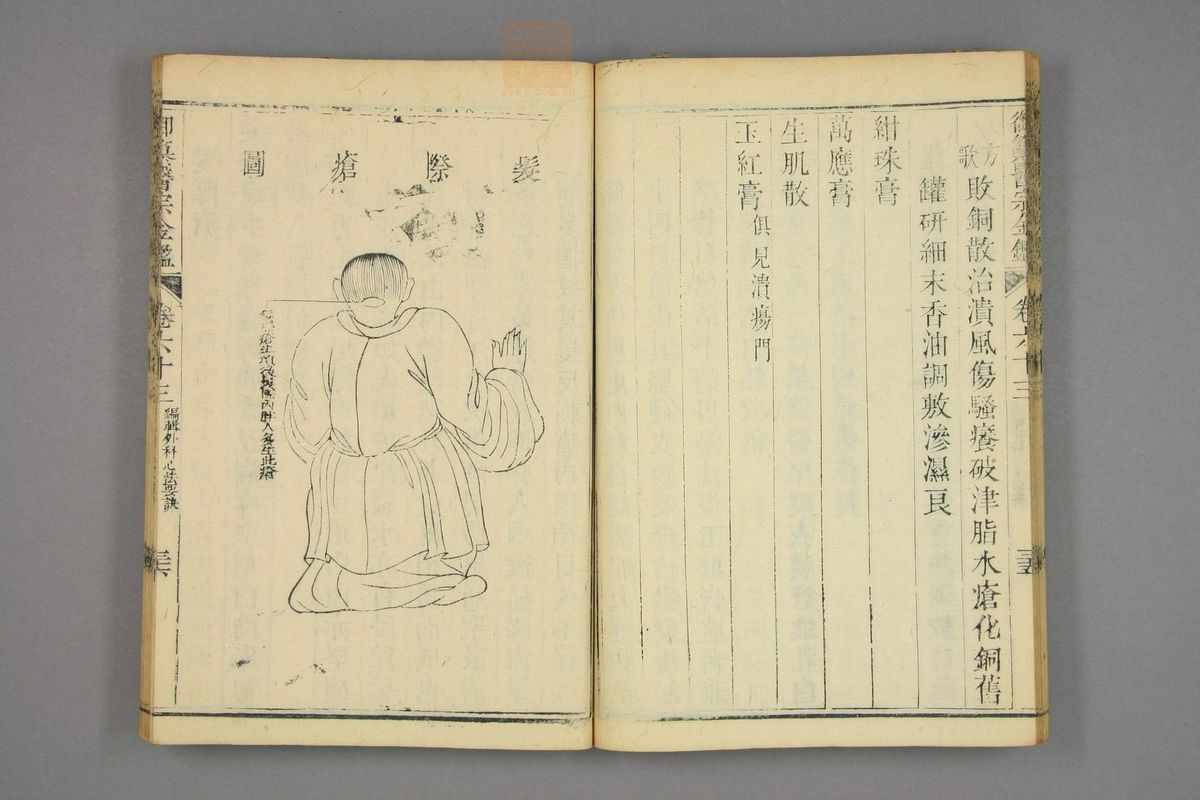 御纂醫宗金鑑
卷六十三
三五
方歌
敗銅散治潰風傷騷癢破津脂水瘡化銅舊
罐研細末香油調敷滲濕良
紺珠膏
萬應膏
生肌散
玉紅膏俱見潰瘍門
髮際瘡圖
瘡生項後髮際內肥人多生此瘡
御纂醫宗金鑑
卷六十三
編輯外科心法要訣
三六